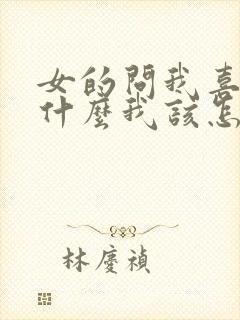 女的問我喜
什麼我該怎
林慶禎